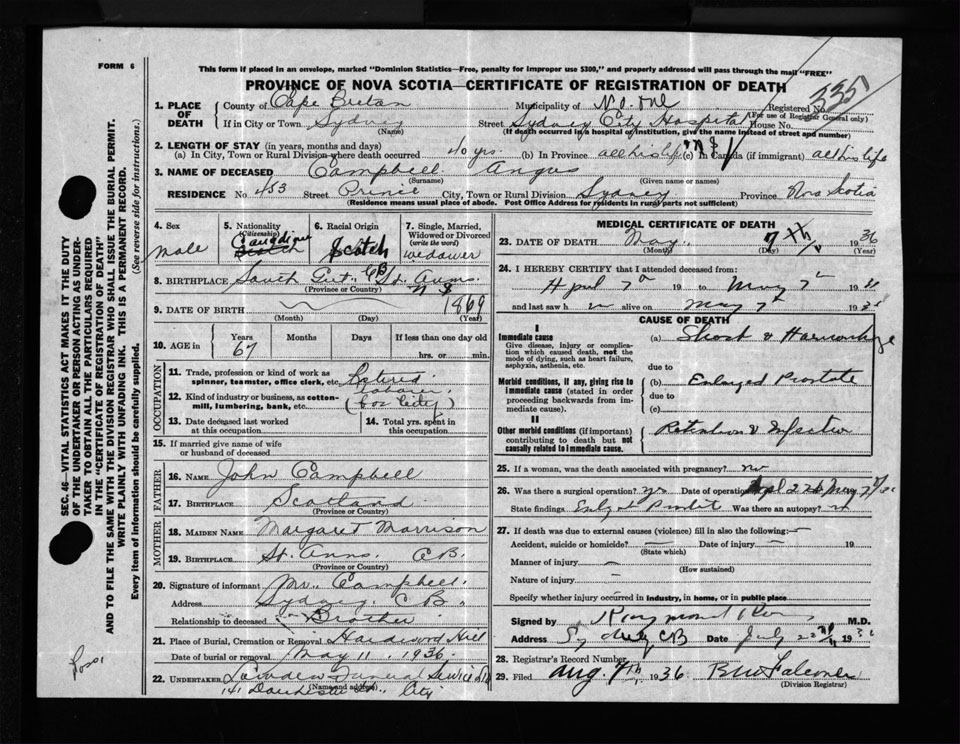 FORM 6
This form if placed in an envelope, marked "Dominion Statistics—Free, penalty for improper use $300," and properly addressed will pass through the mail "FREE"
PROVINCE OF NOVA SCOTIA—CERTIFICATE OF REGISTRATION OF DEATH
335
1. PLACE OF DEATH
County of Cape Breton
Municipality of No. one
Registered No.
(For use of Registrar General only)
If in City or Town Sydney
(Name)
Street Sydney City Hospital House No.
(If death occurred in a hospital or institution, give the name instead of street and number)
2. LENGTH OF STAY (in years, months and days)
(a) In City, Town or Rural Division where death occurred 40 yrs. (b) In Province all his life (c) In Canada (if immigrant) all his life
3. NAME OF DECEASED Campbell Angus
(Surname) (Given name or names)
RESIDENCE No. 453 Street Prince City, Town or Rural Division Sydney Province Nova Scotia
(Residence means usual place of abode. Post Office Address for residents in rural parts not sufficient)
4. Sex
Male
5. Nationality
(Citizenship)
Canadian
Scotch
6. Racial Origin
Scotch
7. Single, Married, Widowed or Divorced
(write the word)
Widower
8. BIRTHPLACE South Gut St. Anns. CB
(Province or Country) N S
9. DATE OF BIRTH 1869
(Month) (Day) (Year)
10. AGE in
Years Months Days If less than one day old
67
hrs. or min.
OCCUPATION
11. Trade, profession or kind of work as spinner, teamster, office clerk, etc. Retired
Laborer
12. Kind of industry or business, as cotton-mill, lumbering, bank, etc. (for City)
13. Date deceased last worked at this occupation
14. Total yrs. spent in this occupation
15. If married give name of wife or husband of deceased
FATHER
16. NAME John Campbell
17. BIRTHPLACE Scotland
(Province or Country)
MOTHER
18. MAIDEN NAME Margaret Morrison
19. BIRTHPLACE St. Anns. CB.
(Province or Country)
20. Signature of informant Mr. Campbell.
Address Sydney. CB.
Relationship to deceased Brother
21. Place of Burial, Cremation or Removal Hardwood Hill
Date of burial or removal May 11, 1936.
22. UNDERTAKER Funeral Service
(Name and address)
City
MEDICAL CERTIFICATE OF DEATH
23. DATE OF DEATH May. 7th 1936
(Month) (Day) (Year)
24. I HEREBY CERTIFY that I attended deceased from:
April 7th 19 to May 7th 19
and last saw h alive on May 7th 19
CAUSE OF DEATH
I
Immediate cause
Give disease, injury or complication which caused death, not the mode of dying, such as heart failure, asphyxia, asthenia, etc.
(a) Shock & Haemorrhage
due to
Morbid conditions, if any, giving rise to immediate cause (stated in order proceeding backwards from immediate cause).
(b) Enlarged Prostate
due to
(c)
II
Other morbid conditions (if important) contributing to death but not causally related to immediate cause.
Retention & Infection
25. If a woman, was the death associated with pregnancy? no
26. Was there a surgical operation? yes Date of operation
State findings Enlgd Prostate Was there an autopsy? no
27. If death was due to external causes (violence) fill in also the following:—
Accident, suicide or homicide? — Date of injury — 19
(State which)
Manner of injury —
(How sustained)
Nature of injury —
Specify whether injury occurred in industry, in home, or in public place
Signed by M.D.
Address Sydney CB Date July 22nd 1936
28. Registrar's Record Number
29. Filed Aug. 7th, 1936 Falconer
(Division Registrar)
SEC. 46—VITAL STATISTICS ACT MAKES IT THE DUTY OF THE UNDERTAKER OR PERSON ACTING AS UNDERTAKER TO OBTAIN ALL THE PARTICULARS REQUIRED IN THE "CERTIFICATE OF REGISTRATION OF DEATH" AND TO FILE THE SAME WITH THE DIVISION REGISTRAR WHO SHALL ISSUE THE BURIAL PERMIT.
WRITE PLAINLY WITH UNFADING INK. THIS IS A PERMANENT RECORD.
Every item of information should be carefully supplied. (See reverse side for instructions.)